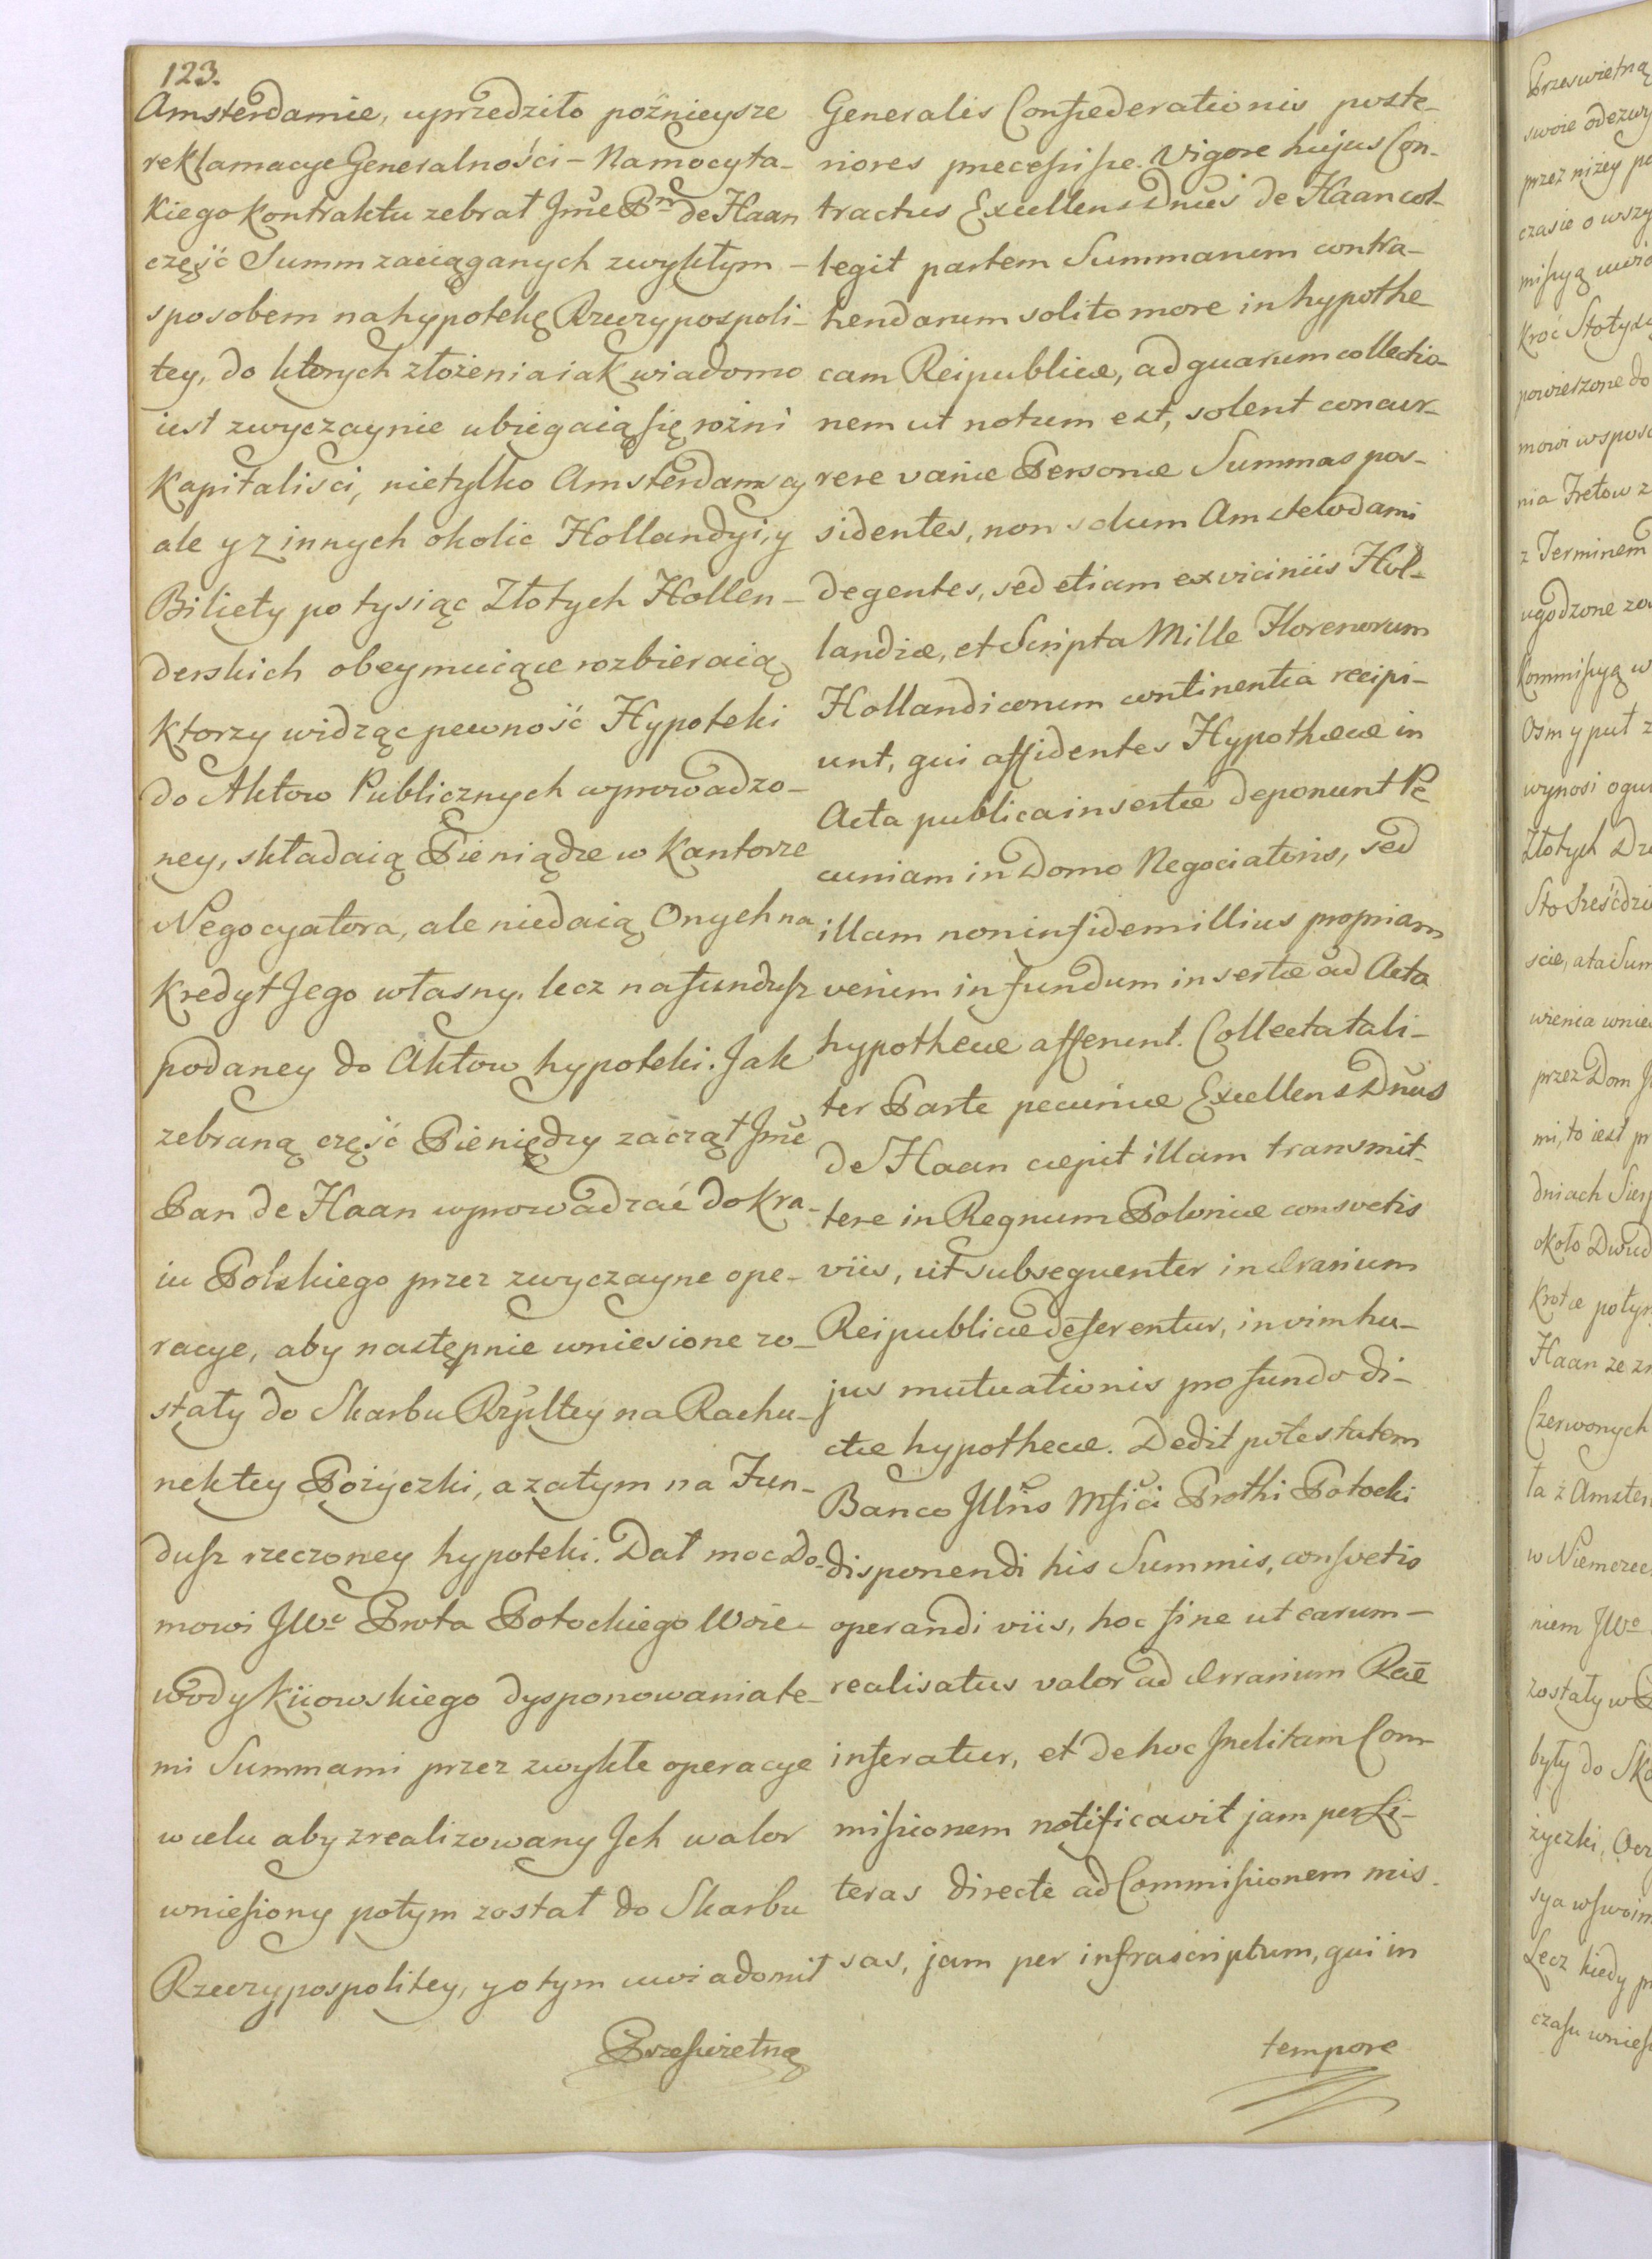 123.
Amsterdamie, uprzedziło poźnieysze
reklamacye Generalności – Na mocy ta-
kiego kontraktu zebrał Jmć Pn de Haan
część Summ zaciąganych zwykłym –
sposobem na hypotekę Rzeczypospoli-
tey, do ktorych złożenia iak wiadomo
iest zwyczaynie ubiegaią się rożni
Kapitalisci, nietylko Amsterdamscy
ale y z innych okolic Hollandyi, y
Biliety po tysiąc Złotych Hollen-
derskich obeymuiące rozbieraią
Ktorzy widząc pewność Hypoteki
do Aktow Publicznych wprowadzo-
ney, składaią Pieniądze w Kantorze
Negocyatora, ale niedaią Onych na
kredyt Jego własny, lecz na fundusz
podaney do Aktow hypoteki. Jak
zebraną część Pieniędzy zaczął Jmć
Pan de Haan wprowadzać do Kra-
iu Polskiego przez zwyczayne ope-
racye, aby następnie wniesione zo-
stały do Skarbu Rzpltey na Rachu-
nek tey Pożyczki, a zatym na Fun-
dusz rzeczoney hypoteki. Dał moc Do-
mowi JWo Prota Potockiego Woie-
wody Kiiowskiego dysponowania te-
mi Summami przez zwykłe operacye
w celu aby zrealizowany Jch walor
wniesiony potym został do Skarbu
Rzeczypospolitey, y o tym uwiadomił
Prześwietną
Generalis Confiederationis poste-
riores præcessisse. Vigore hujus Con-
tractus Excellens Dnus de Haan col-
legit partem Summarum contra-
hendarum solito more in hypothe
cam Reipublicæ, ad quarum collectio-
nem ut notum est, solent concur-
rere variæ Personæ Summas pos-
sidentes, non solum Amstelodami
degentes, sed etiam ex viciniis Hol-
landiæ, et Scripta Mille Florenorum
Hollandicorum continentia recipi-
unt, qui affidentes Hypothecæ in
Acta publica insertæ deponunt Pe
cuniam in Domo Negociatoris, sed
illam non in fidem illius propriam
verum in fundum insertæ ad Acta
hypothecæ afferunt. Collecta tali-
ter Parte pecuniæ Excellens Dnus
de Haan cæpit illam transmit-
tere in Regnum Poloniæ consvetis
viis, ut subsequenter in Ærarium
Reipublicæ deferentur, in vim hu-
jus mutuationis pro fundo di-
ctæ hypothecæ. Dedit potestatem
Banco Jllris Mfici Prothi Potocki
disponendi his Summis, consvetis
operandi viis, hoc fine ut earum –
realisatus valor ad Ærrarium Rae
inferatur, et de hoc Jnclitam Com
missionem notificavit jam per Li-
teras directe ad Commissionem mis-
sas, jam per infrascriptum, qui in
tempore
Prześwietną
swoie odezwy
przez niżey po
czasie o wszy
missyą uwia
kroć Stotysią
powierzone do
mowi w sposo
nia Fretow z
z Terminem
ugodzone zo
Kommissyą w
Osm y puł z
wynosi ogu
Złotych Dzi
Sto Sześćdzi
scie, a ta Sum
wienia wnie
przez Dom J
mi, to iest pr
dniach Sierp
około Dwud
Haan ze zn
Czerwonych
ła z Amster
w Niemczec
niem JWo
zostały w P
były do Ska
życzki,
sya w swoim
Lecz kiedy pr
czasu wnies